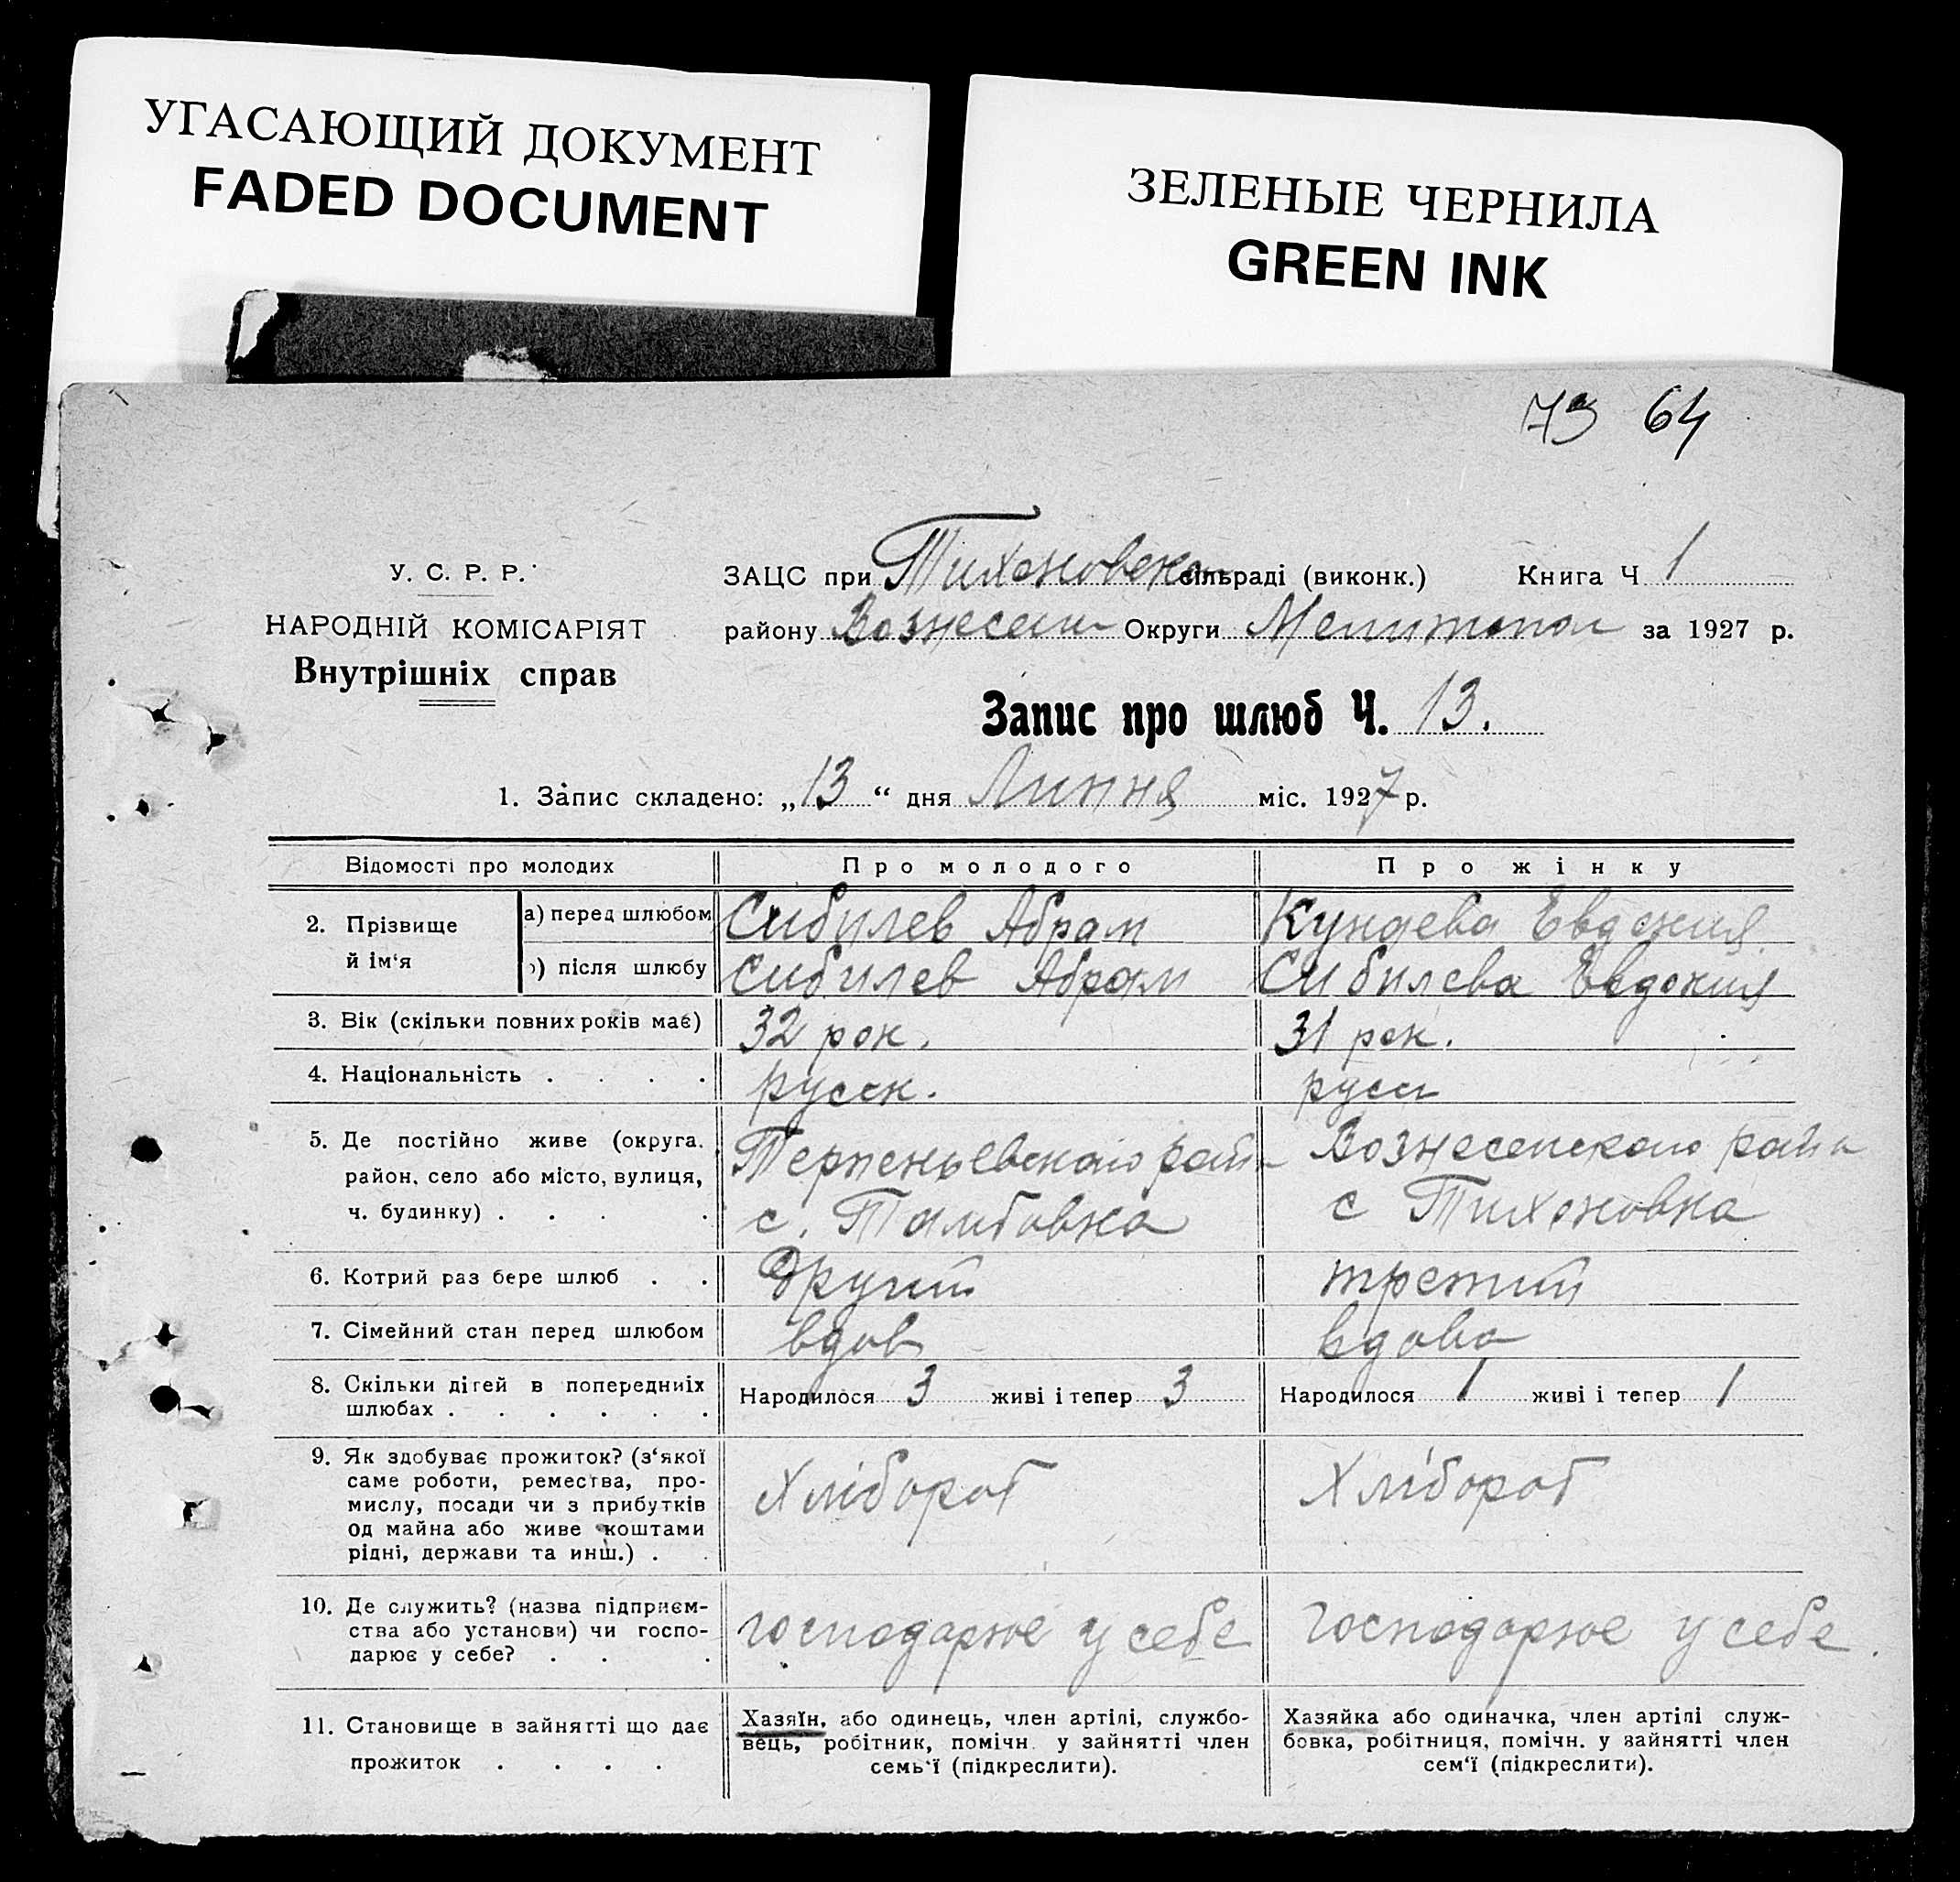 УГАСАЮЩИЙ ДОКУМЕНТ
FADED DOCUMENT
ЗЕЛЕНЫЕ ЧЕРНИЛА
GREEN INK
73 64
У. С. Р. Р.
НАРОДНІЙ КОМІСАРІЯТ
Внутрішніх справ
ЗАЦС при Тихоновско сільраді (виконк.) Книга Ч 1
району Вознесен Округи Мелитопол за 1927 р.
Запис про шлюб Ч. 13.
1. Запис складено: „13“ дня Липня міс. 1927 р.
Відомості про молодих Про молодого Про жінку
2. Прізвище й ім‘я
а) перед шлюбом Сибилев Абрам Кунаева Евдокия
б) після шлюбу Сибилев Абрам Сибилева Евдокия
3. Вік (скільки повних років має) 32 рок. 31 рок.
4. Національність . . . . русск. русск
5. Де постійно живе (округа. Терпеньевского рай Вознесенского рай
район, село або місто, вулиця, с. Тамбовка с Тихоновка
ч. будинку) . . . .
6. Котрий раз бере шлюб . . Другий третий
7. Сімейний стан перед шлюбом вдов вдова
8. Скільки дітей в попередниіх Народилося 3 живі і тепер 3 Народилося 1 живі і тепер 1
шлюбах . . . . . .
9. Як здобуває прожиток? (з‘якої
саме роботи, ремества, про-
мислу, посади чи з прибутків Хлібороб Хлібороб
од майна або живе коштами
рідні, держави та инш.) . .
10. Де служить? (назва підприєм-
ства або установи) чи госпо- господарює у себе господарює у себе.
дарює у себе? . . .
11. Становище в зайнятті що дає
прожиток . . . .
Хазяїн, або одинець, член артілі, службо-
вець, робітник, помічн. у зайнятті член
семь‘ї (підкреслити).
Хазяйка або одиначка, член артілі служ-
бовка, робітниця, помічн. у зайнятті член
сем‘ї (підкреслити).